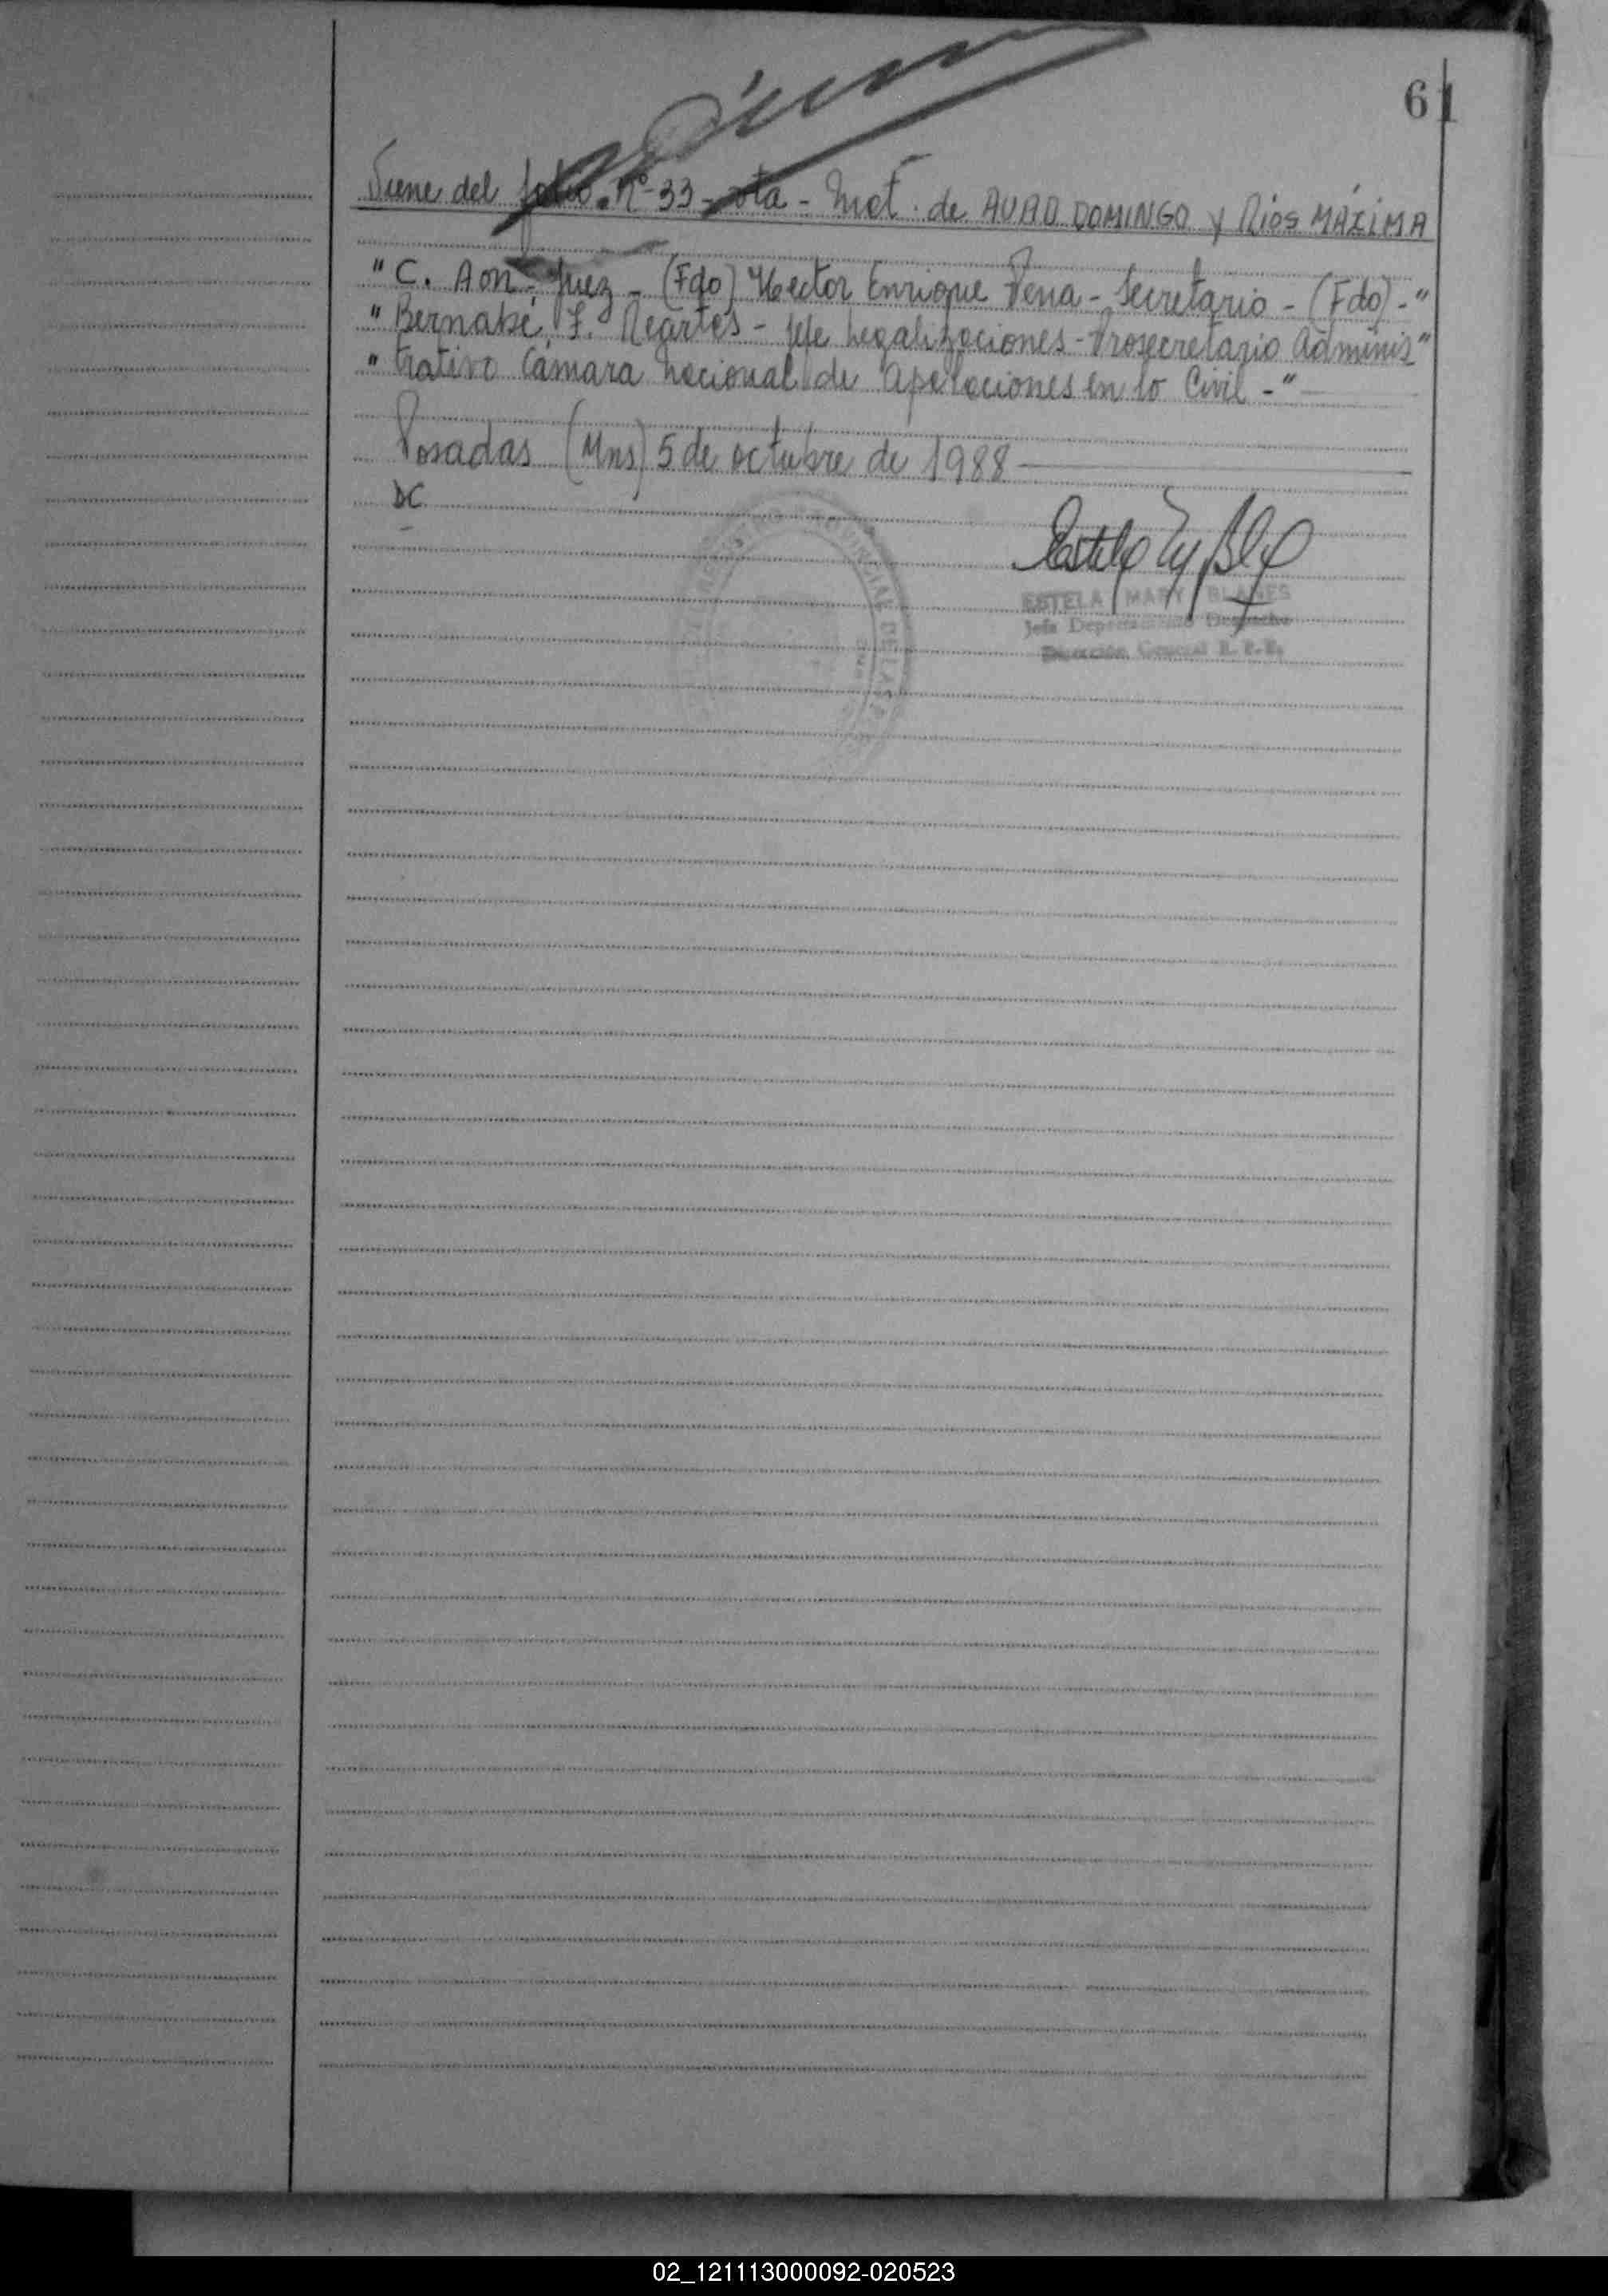 61
Viene del folio Nº 33 - vta - Mat. de AUAD DOMINGO y Ríos MÁXIMA
"C. Aon - Juez - (Fdo) Hector Enrique Pena - Secretario - (Fdo) - "
"Bernabé F. Reartes - Jefe Legalizaciones - Prosecretario Adminis"
"trativo Cámara Nacional de Apelaciones en lo Civil - "
Posadas (Mns) 5 de octubre de 1988
DC
ESTELA MARY BLANES
Jefa Departamento Despacho
Dirección General R. P. P.
02_121113000092-020523